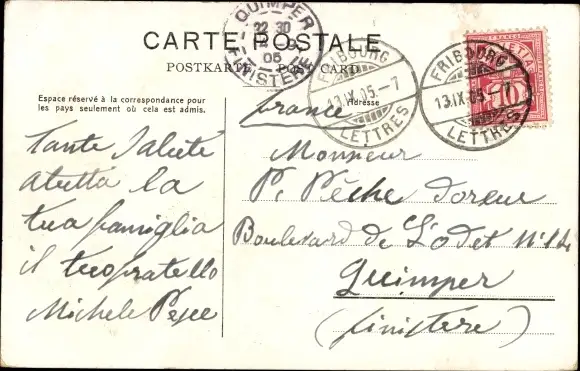 QUIMPER
22 30
05
FINISTERE
CARTE POSTALE
POSTKARTE POST CARD
Espace réservé à la correspondance pour
les pays seulement où cela est admis.
Adresse
FRIBOURG
13.IX.05.–7
LETTRES
FRIBOURG
13.IX.05.–7
LETTRES
10
Tante Saluté
atutta la
tua famiglia
il tuo fratello
Michele Pesce
france
Monsieur
P. Pêche doreur
Boulevard de L'odet N°14
Quimper
(finistere)